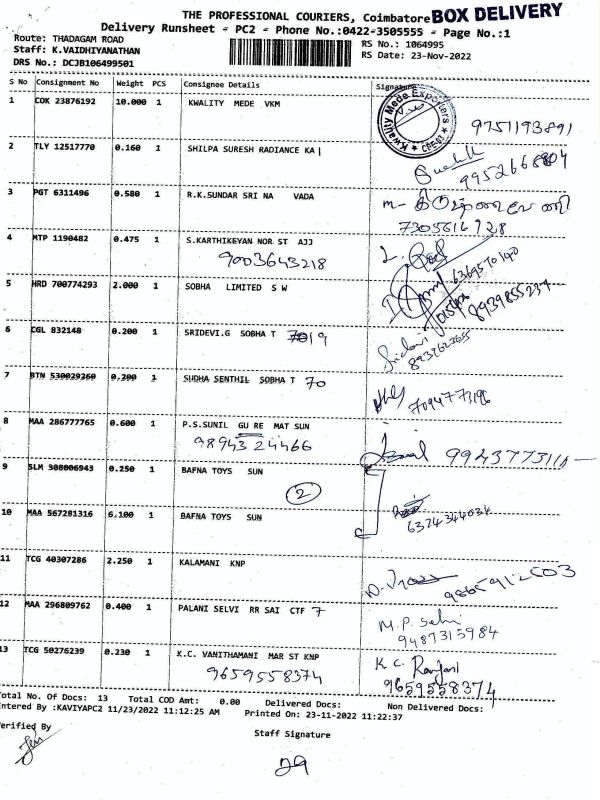 THE PROFESSIONAL COURIERS, Coimbatore BOX DELIVERY
Delivery Runsheet - PC2 - Phone No.:0422-3505555 - Page No.:1
Route: THADAGAM ROAD
RS No.: 1064995
Staff: K.VAIDHIYANATHAN
RS Date: 23-Nov-2022
DRS No.: DCJB106499501
S No Consignment No Weight PCS Consignee Details Signature
1 COK 23876192 10.000 1 KWALITY MEDE VKM
Kwality Mede Exporters
CBE-03
9751193891
2 TLY 12517770 0.160 1 SHILPA SURESH RADIANCE KA
3 PGT 6311496 0.580 1 R.K.SUNDAR SRI NA VADA
7305616728
4 MTP 1190482 0.475 1 S.KARTHIKEYAN NOR ST AJJ
9003643218
5 HRD 700774293 2.000 1 SOBHA LIMITED S W
8939855237
6 CGL 832148 0.200 1 SRIDEVI.G SOBHA T 7019
7 BTN 530029260 0.200 1 SUDHA SENTHIL SOBHA T 70
7094773196
8 MAA 286777765 0.600 1 P.S.SUNIL GU RE MAT SUN
98943 24466
9943773111
9 SLM 308006943 0.250 1 BAFNA TOYS SUN
2
10 MAA 567281316 6.100 1 BAFNA TOYS SUN
6374344034
11 TCG 40307286 2.250 1 KALAMANI KNP
9865912503
12 MAA 296809762 0.400 1 PALANI SELVI RR SAI CTF 7
M.P. Selvi
9487315984
13 TCG 50276239 0.230 1 K.C. VANITHAMANI MAR ST KNP
9659558374
K.C. Ranjani
9659558374
Total No. Of Docs: 13 Total COD Amt: 0.00 Delivered Docs: Non Delivered Docs:
Entered By :KAVIYAPC2 11/23/2022 11:12:25 AM Printed On: 23-11-2022 11:22:37
Verified By
Staff Signature
29